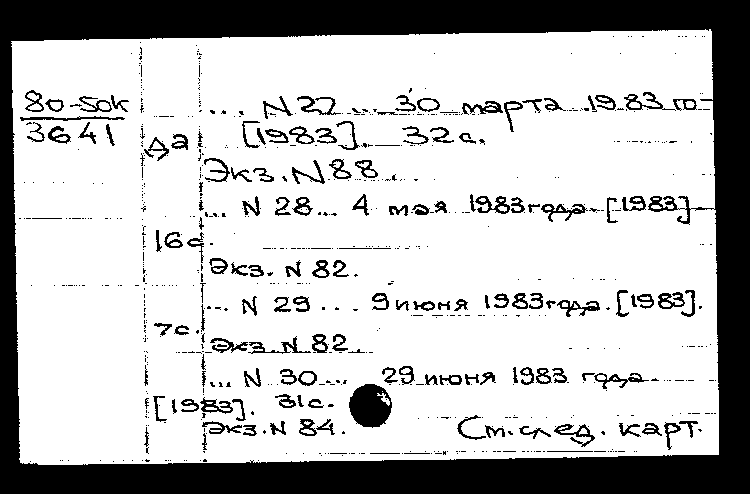 80-50к
3641
... N 27 ... 30 марта 1983 го-
да [1983]. 32 с.
Экз. N 88.
... N 28 ... 4 мая 1983 года. [1983].
16 с.
Экз. N 82.
... N 29 ... 9 июня 1983 года. [1983].
7 с.
Экз. N 82.
... N 30 ... 29 июня 1983 года.
[1983]. 31 с.
Экз. N 84. См. след. карт.